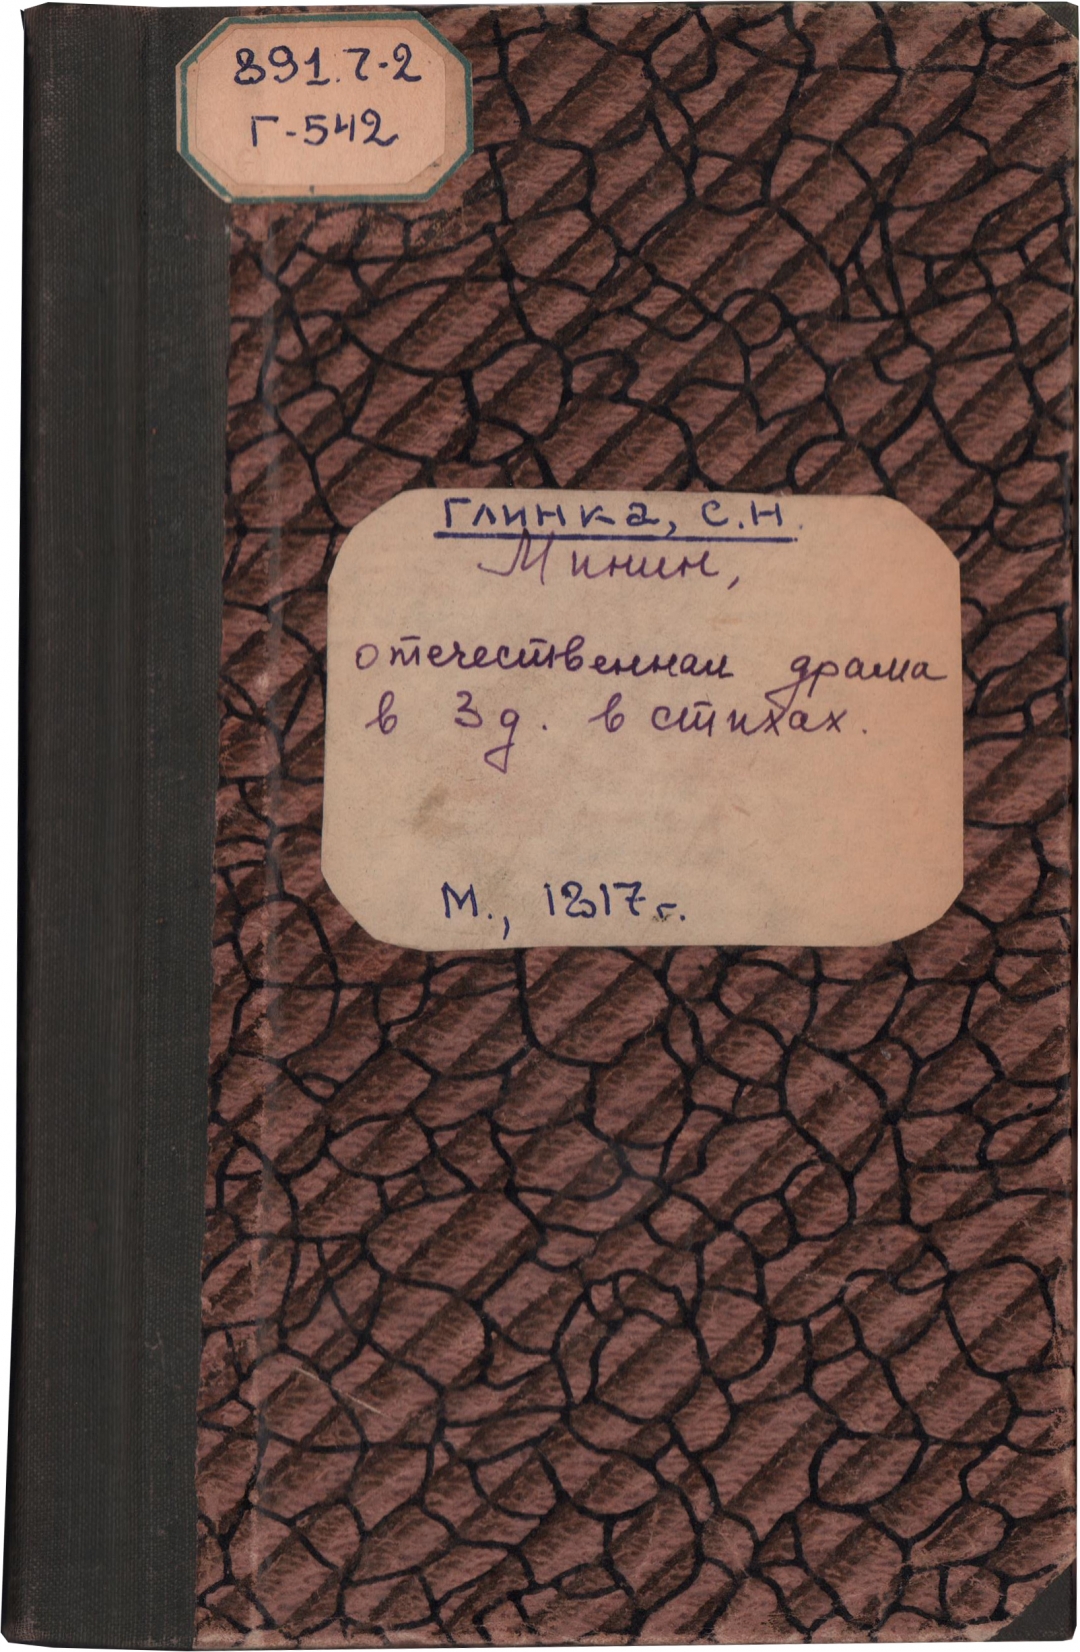 891.7-2
Г-542
Глинка, С.Н.
Минин,
отечественная драма
в 3 д. в стихах.
М., 1817 г.